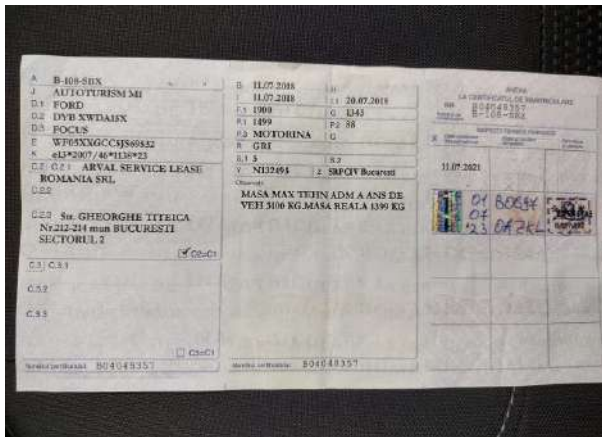 A B-108-SBX
J AUTOTURISM M1
D.1 FORD
D.2 DYB XWDA15X
D.3 FOCUS
E WF05XXGCC5JS69832
K e13*2007/46*1138*23
C.2 C.2.1 ARVAL SERVICE LEASE
ROMANIA SRL
C.2.2
C.2.3 Str. GHEORGHE TITEICA
Nr.212-214 mun BUCURESTI
SECTORUL 2
C2=C1
C.3 C.3.1
C.3.2
C.3.3
C3=C1
B04048357
B 11.07.2018
H
I 11.07.2018
I.1 20.07.2018
F.1 1900
G 1343
P.1 1499
P.2 88
P.3 MOTORINA
Q
R GRI
S.1 5
S.2
Y N132494
Z SRPCIV Bucuresti
Observații
MASA MAX TEHN ADM A ANS DE
VEH 3100 KG.MASA REALA 1399 KG
B04048357
ANEXA
LA CERTIFICATUL DE ÎNMATRICULARE
B04048357
B-108-SBX
INSPECȚII TEHNICE PERIODICE
X
11.07.2021
01
07
'23